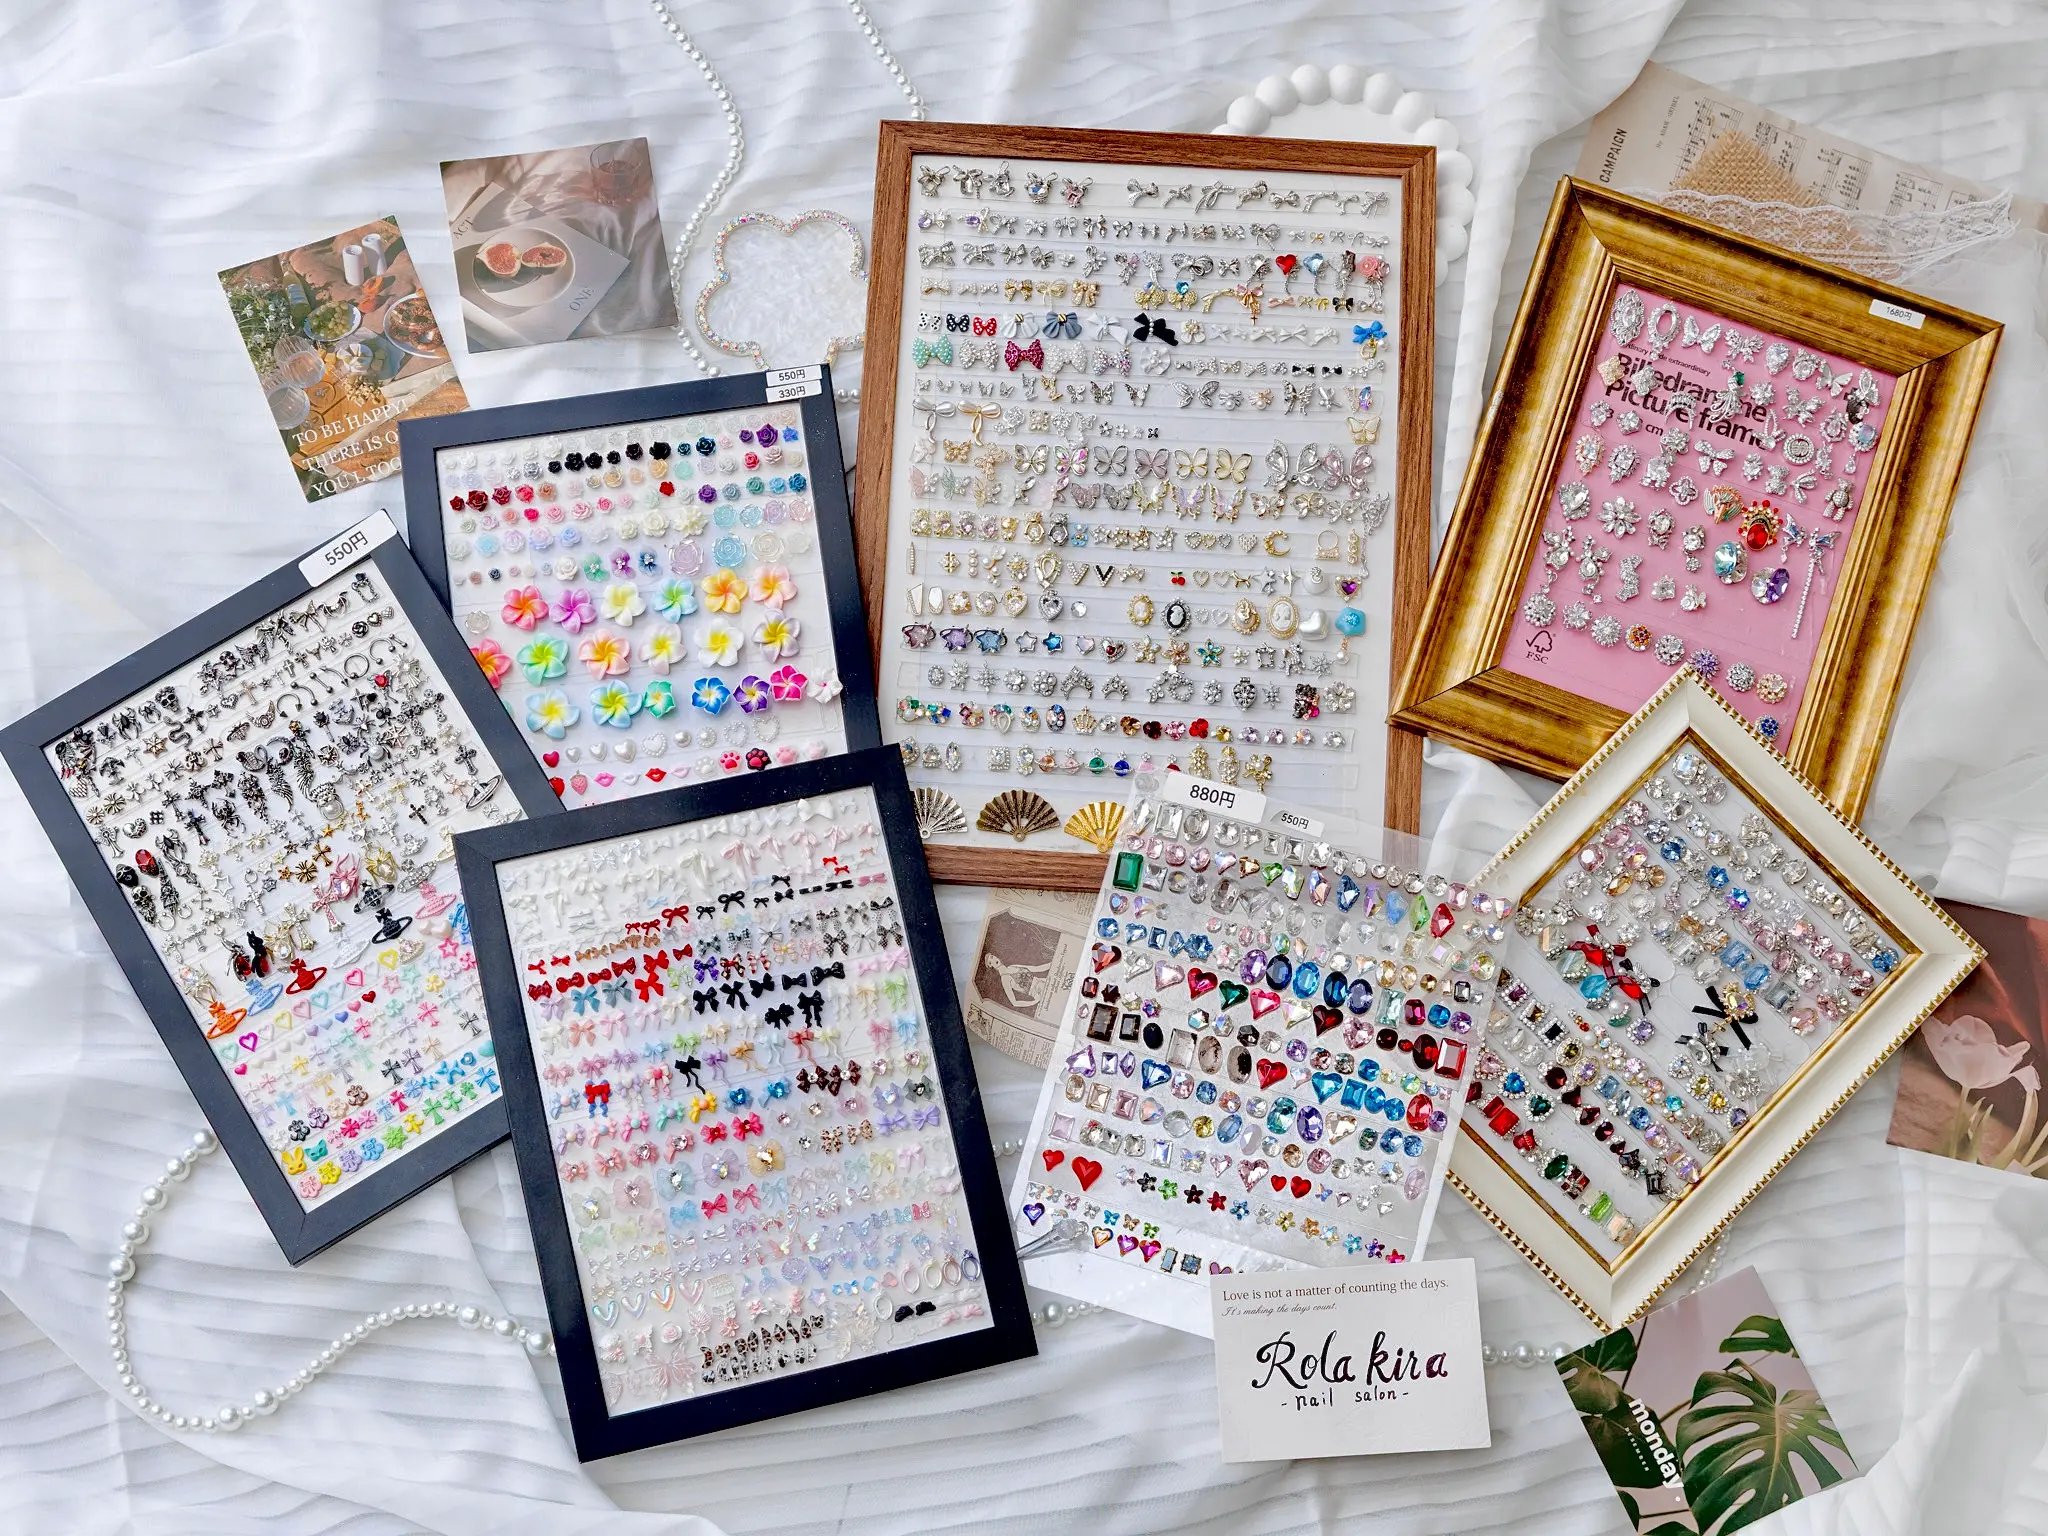 ACT
ONE
TO BE HAPPY!
THERE IS O
YOU'L TOO
CAMPAIGN
550円
330円
550円
1680円
Picture frame
FSC
880円
550円
Love is not a matter of counting the days.
It's making the days count.
Rola kira
- nail salon -
monday